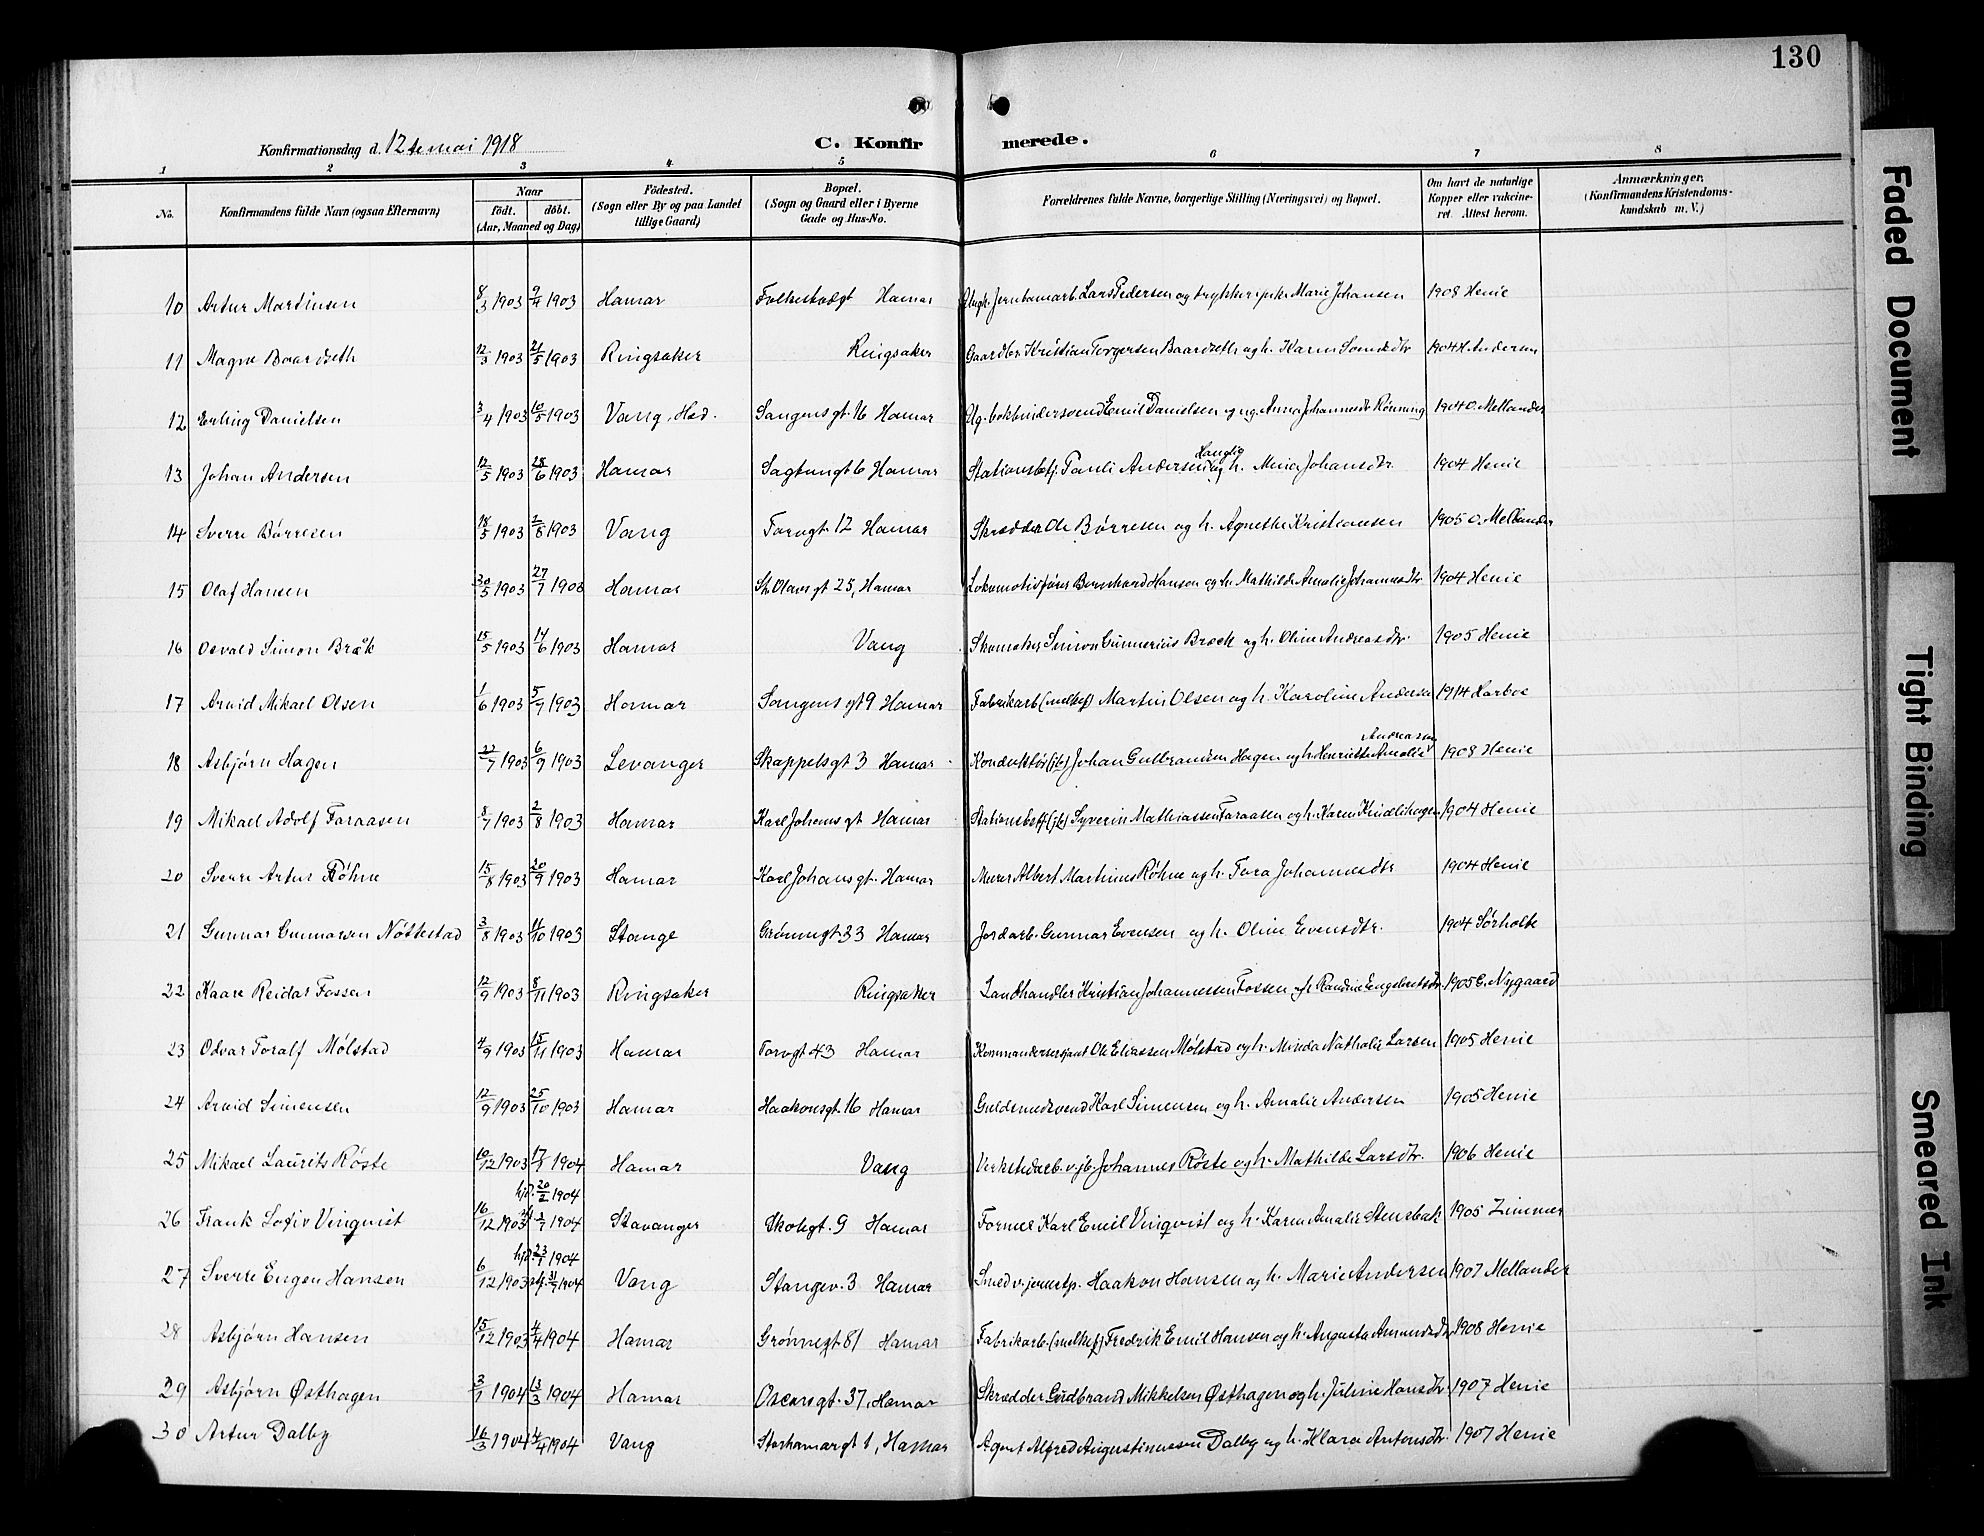 130
Konfirmationsdag d. 12te mai 1918
C. Konfirmerede.
1 2 3 4 5 6 7 8
No. Konfirmandens fulde Navn (ogsaa Efternavn) Naar født. døbt. (Aar, Maaned og Dag) Fødested. (Sogn eller By og paa Landet tillige Gaard) Bopæl. (Sogn og Gaard eller i Byerne Gade og Hus-No. Forældrenes fulde Navne, borgerlige Stilling (Næringsvei) og Bopæl. Om havt de naturlige Kopper eller vakcineret. Attest herom. Anmærkninger. (Konfirmandens Kristendomskundskab m. V.)
10 Artur Martinsen 8/3 1903 9/4 1903 Hamar Folkestadgt Hamar Ungk. Jernbanearb. Lars Pedersen og trykkeripike Marie Johansen 1908 Henie
11 Magne Baardseth 12/3 1903 21/5 1903 Ringsaker Ringsaker Gaardbr. Kristian Torgersen Baardseth og h. Karen 1904 H. Andersen
12 Erling Danielsen 3/4 1903 10/5 1903 Vang, Hed. Sangensgt. 16 Hamar Ug. bokbindersvend Emil Danielsen og ug. Anna Johannesdtr Rønning 1904 O. Mellander
13 Johan Andersen 12/5 1903 28/6 1903 Hamar Sagtungt 6 Hamar Stationsbetj. Pauli Andersen Hanglie og h. Mina Johansdtr. 1904 Henie
14 Sverre Børresen 18/5 1903 2/8 1903 Vang Torvgt. 12 Hamar Skrædder Ole Børresen og h. Agnethe Kristiansen 1905 O. Mellander
15 Olaf Hansen 30/5 1903 27/7 1903 Hamar St. Olavsgt 25, Hamar Lokomotivfører Bernhard Hansen og h. Mathilde Amalie Johannesdtr. 1904 Henie
16 Osvald Simon Bræk 15/5 1903 14/6 1903 Hamar Vang Skomaker Simon Gunnerius Bræck og h. Oline Andreasdtr. 1905 Henie
17 Arvid Mikael Olsen 1/6 1903 5/9 1903 Hamar Sangensgt 9 Hamar Fabrikarb (melkef) Martin Olsen og h. Karoline Andersen 1914 Harboe
18 Asbjørn Hagen 22/7 1903 6/9 1903 Levanger Skappelsgt 3 Hamar Konduktør (jb) Johan Gulbrandsen Hagen og h. Henriette Amalie Andreasen 1908 Henie
19 Mikael Adolf Faraasen 8/7 1903 2/8 1903 Hamar Karl Johansgt Hamar Stationsbetj (jb) Syverin Mathiassen Faraasen og h. Karen Kindlihagen 1904 Henie
20 Sverre Artur Røhne 15/8 1903 20/9 1903 Hamar Karl Johansgt. Hamar Murer Albert Martinius Røhne og h. Tora Johannesdtr 1904 Henie
21 Gunnar Gunnarsen Nøttestad 3/8 1903 11/10 1903 Stange Grønnegt. 33 Hamar Jordarb. Gunnar Evensen og h. Oline Evensdtr. 1904 Sørholte
22 Kaare Reidar Fossen 12/9 1903 8/11 1903 Ringsaker Ringsaker Landhandler Kristian Johannessen Fossen og h. Randine Engebretsdtr. 1905 E. Nygaard
23 Odvar Toralf Mølstad 4/9 1903 15/11 1903 Hamar Torvgt 43 Hamar Kommandersersjant Ole Eliassen Mølstad og h. Minda Nathalie Larsen 1905 Henie
24 Arvid Simensen 12/9 1903 25/10 1903 Hamar Haakonsgt. 16 Hamar Guldsmedsvend Karl Simensen og h. Amalie Andersen 1905 Henie
25 Mikael Laurits Røste 10/12 1903 17/1 1904 Hamar Vang Verkstedarb. v. jb. Johannes Røste og h. Mathilde Larsdtr. 1906 Henie
26 Frank Lofiv Vinqvist 16/12 1903 hjd. 20/2 1904 3/7 1904 Stavanger Skolegt. 9 Hamar Former Karl Emil Vinqvist og h. Karen Amalie Stensbak 1905 Zimmer
27 Sverre Eugen Hansen 6/12 1903 hjd. 23/1 1904 31/7 1904 Vang Stangev. 3 Hamar Smed v. jernstøp. Haakon Hansen og h. Marie Andersen 1907 Mellander
28 Asbjørn Hansen 15/12 1903 4/4 1904 Hamar Grønnegt. 81 Hamar Fabrikarb. (melkef) Fredrik Emil Hansen og h. Augusta Amundsdtr 1908 Henie
29 Asbjørn Østhagen 3/1 1904 13/3 1904 Hamar Oscarsgt. 37, Hamar Skrædder Gudbrand Mikkelsen Østhagen og h. Juline Hansdtr. 1907 Henie
30 Artur Dalby 16/3 1904 4/4 1904 Vang Storhamargt 1, Hamar Agent Alfred Augustinussen Dalby og h. Klara Antonsdtr. 1907 Henie
Faded Document
Tight Binding
Smeared Ink